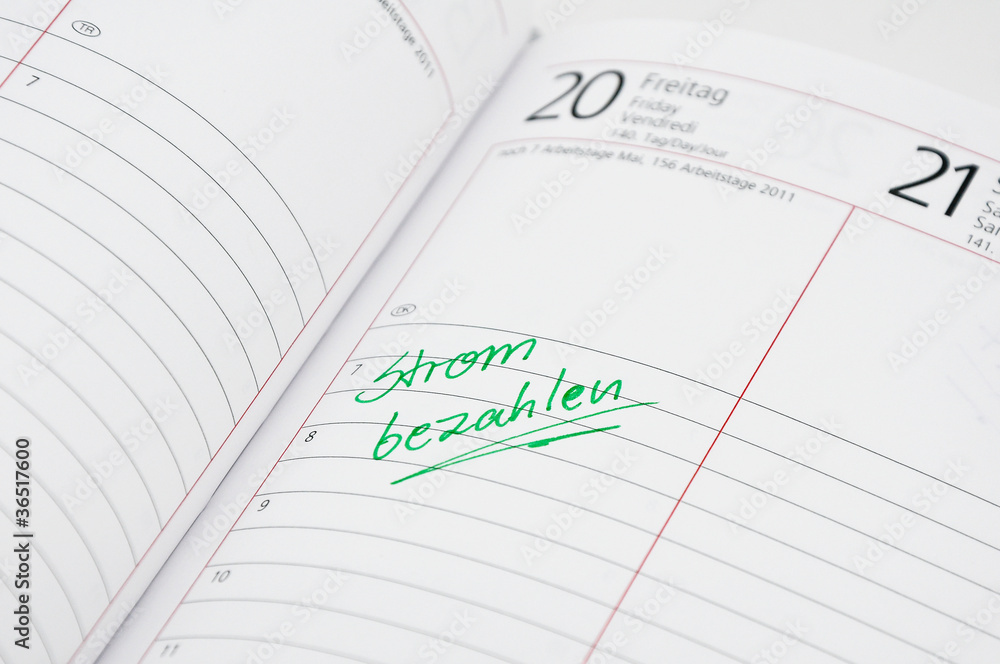 TR
7
Arbeitstage 2011
20 Freitag
Friday
Vendredi
140. Tag/Day/Jour
noch 7 Arbeitstage Mai, 156 Arbeitstage 2011
21
141.
DK
7 Strom
bezahlen
8
9
10
11
Adobe Stock | #36517600